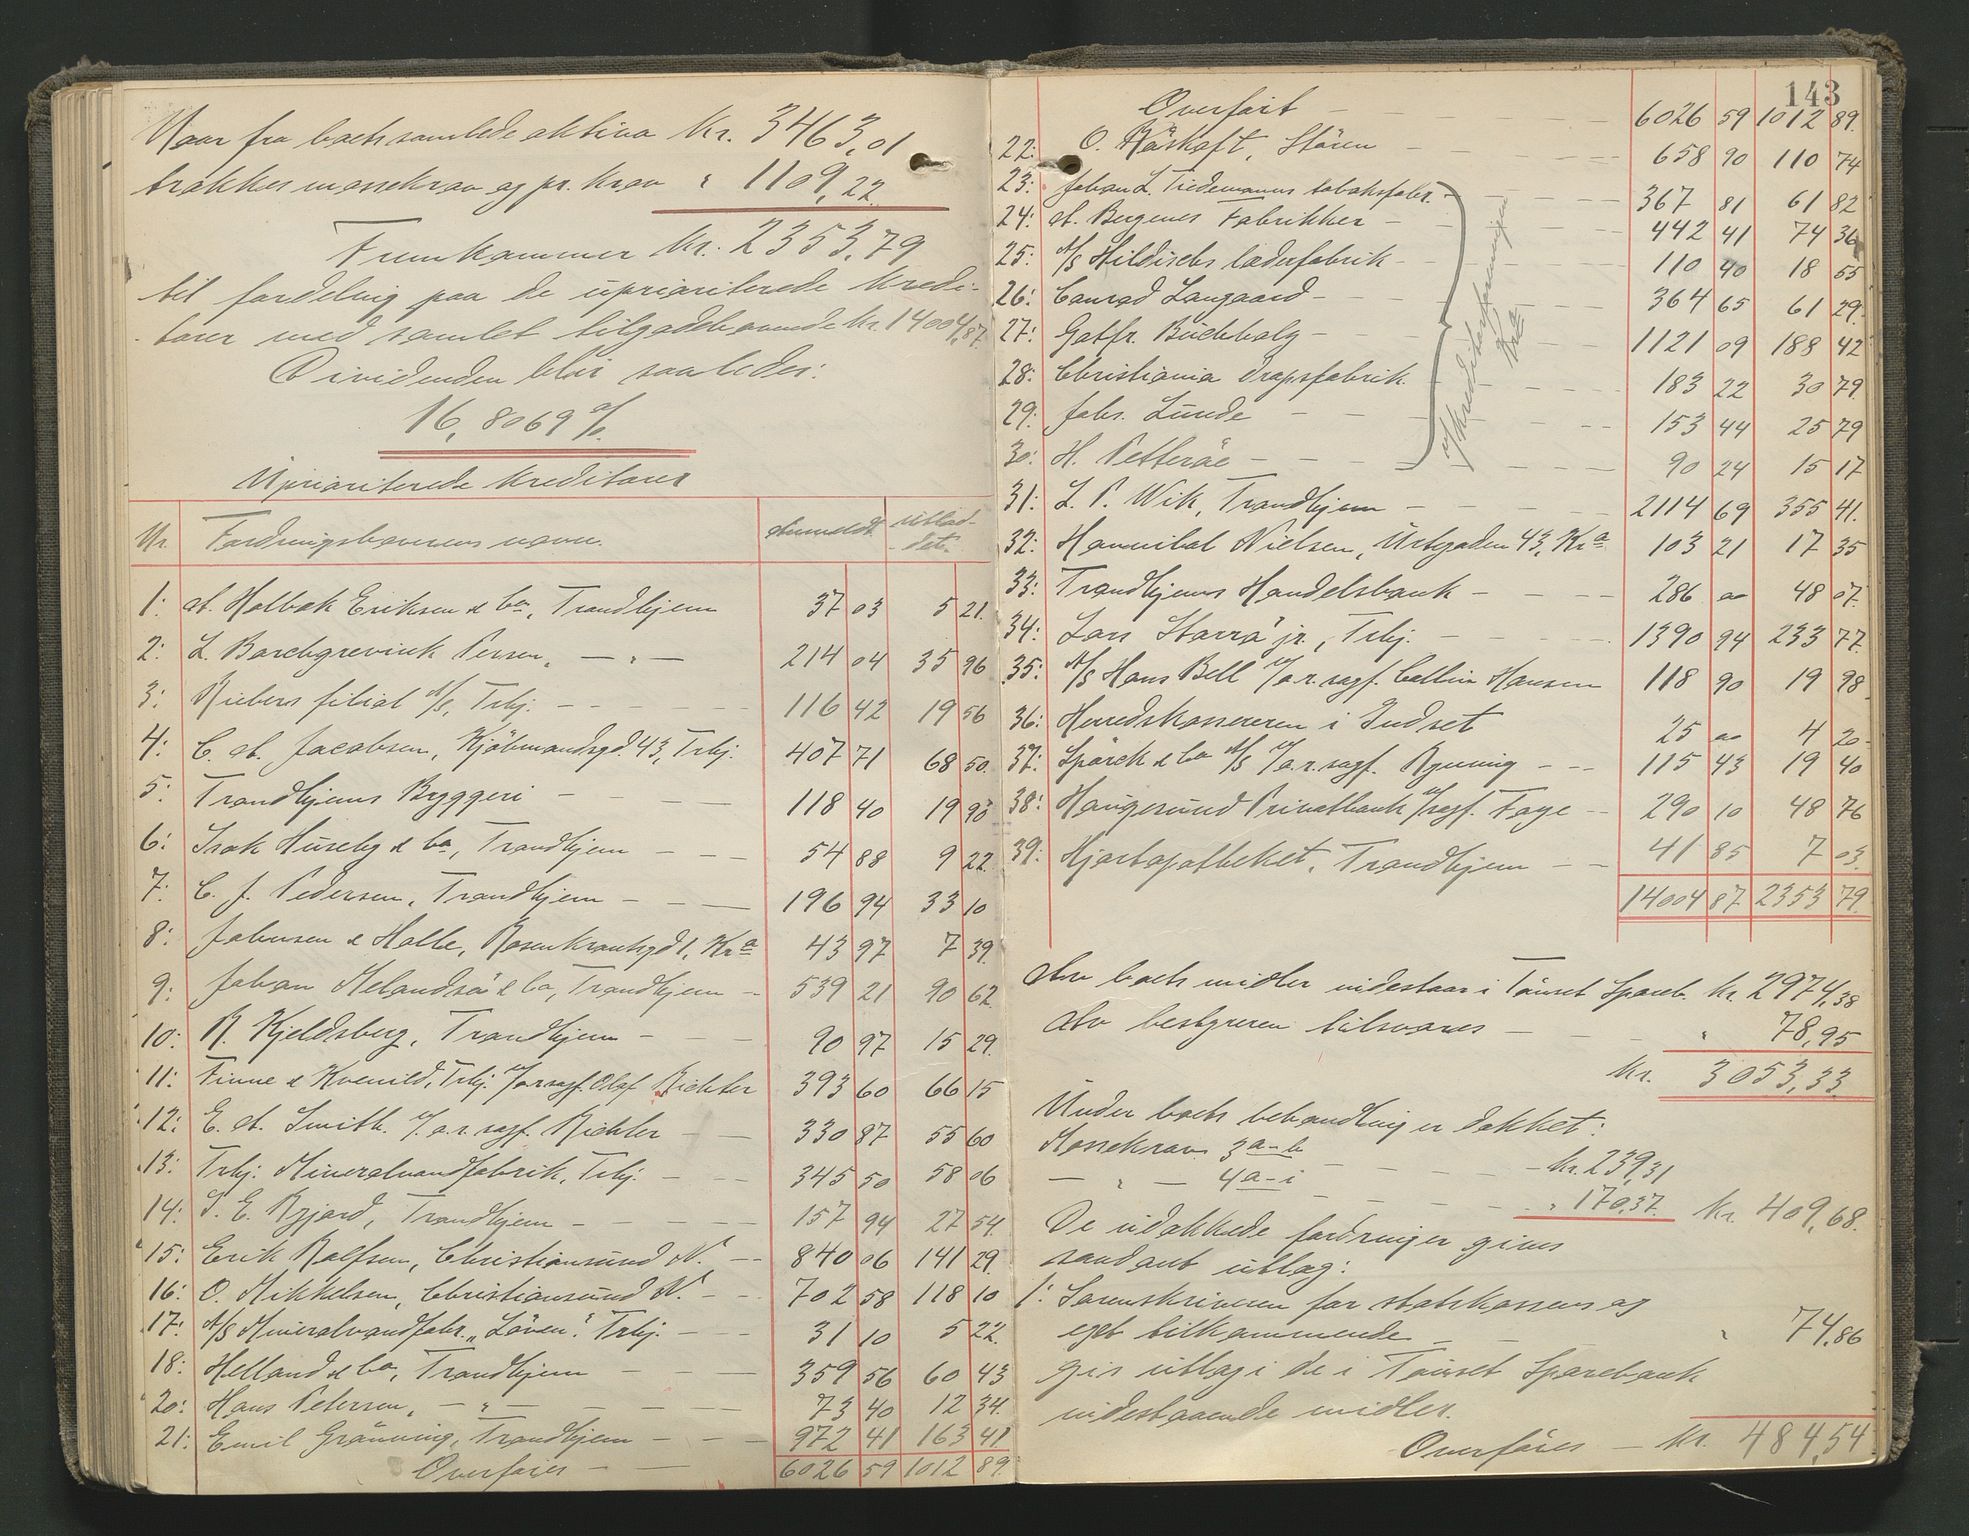 Naar fra boets samlede aktiva kr. 3463,01
trækkes massekrav og pr. krav " 1109,22
Fremkommer kr. 2353,79
til fordeling paa de uprioriterede kredi-
torer med samlet tilgodehavende kr. 14004,87.
Dividenden blir saaledes:
16,8069 %.
Uprioriterede kreditorer
Nr. Fordringshaverens navn. Anmeldt. Utlod-
det.
1: A. Holbæk Eriksen & Co, Trondhjem 37 03 5 21.
2: L. Borchgrevink Persen, — " — 214 04 35 96
3: Riebers filial A/S, Trhj. 116 42 19 56
4: C. A. Jacobsen, Kjöbmandsgd. 43, Trhj. 407 71 68 50.
5: Trondhjems Bryggeri 118 40 19 90
6: Isak Huseby & Co, Trondhjem 54 88 9 22.
7: C. J. Pedersen, Trondhjem 196 94 33 10
8: Johnsen & Halle, Rosenkrantzgd 1, Kra 43 97 7 39.
9: Johan Melandsö & Co, Trondhjem 539 21 90 62.
10: R. Kjeldsberg, Trondhjem 90 97 15 29.
11: Finne & Kvenild, Trhj. v/o.r.sagf. Olaf Richter 393 60 66 15
12: E. A. Smith. v/o.r.sagf. Richter 330 87 55 60
13: Trhj. Mineralvandfabrik, Trhj. 345 50 58 06
14: P. E. Rzjord, Trondhjem 157 94 27 54.
15: Erik Rolfsen, Christiansund N. 840 06 141 29.
16: O. Mikkelsen, Christiansund N. 702 58 118 10
17: A/S Mineralvandfabr. „Löven." Trhj. 31 10 5 22.
18: Helland & Co, Trondhjem 359 56 60 43
20: Hans Petersen, — " — 73 40 12 34.
21: Emil Grönning, Trondhjem 972 41 163 41
Overföres 6026 59 1012 89.
143
Overfört 6026 59 1012 89.
22: O. Råskaft, Stören 658 90 110 74
23: Johan L. Tiedemanns tobaksfabr. 367 81 61 82
24: A. Bergenes Fabrikker 442 41 74 36
25: A/S Hildisch's læderfabrik 110 40 18 55
26: Conrad Langaard 364 65 61 29.
27: Gotfr. Buchholz 1121 09 188 42
28: Christiania Dropsfabrik. 183 22 30 79
29: Johs. Lunde 153 44 25 79
30: H. Petteröe 90 24 15 17
v/kreditorforeningen
Kra
31: L. P. Wik, Trondhjem 2114 69 355 41.
32: Hannibal Nielsen, Urtegaden 43, Kra 103 21 17 35
33: Trondhjems Handelsbank 286 00 48 07.
34: Lars Starra jr., Trhj. 1390 94 233 77.
35: A/S Hans Bell v/o.r.sagf. Collin Hansen 118 90 19 98.
36: Herredskassereren i Indset 25 00 4 20
37: Spörck & Co A/S v/o.r.sagf. Ryning 115 43 19 40
38: Haugesund Privatbank v/sagf. Faye 290 10 48 76
39: Hjorteapotheket, Trondhjem 41 85 7 03.
14004 87 2353 79.
Av boets midler indestaar i Tönset Spareb. kr. 2974,38
Av bestyreren tilsvares " 78,95
kr. 3053,33.
Under boets behandling er dækket:
Massekrav 3 a-b kr. 239,31
— " — 4 a-i " 170,37. kr. 409,68.
De udækkede fordringer gives
saadant utlæg:
1: Sorenskriveren for statskassens og
eget tilkommende " 74,86
gis utlæg i de i Tönset Sparebank
indestaaende midler.
Overföres kr. 484,54